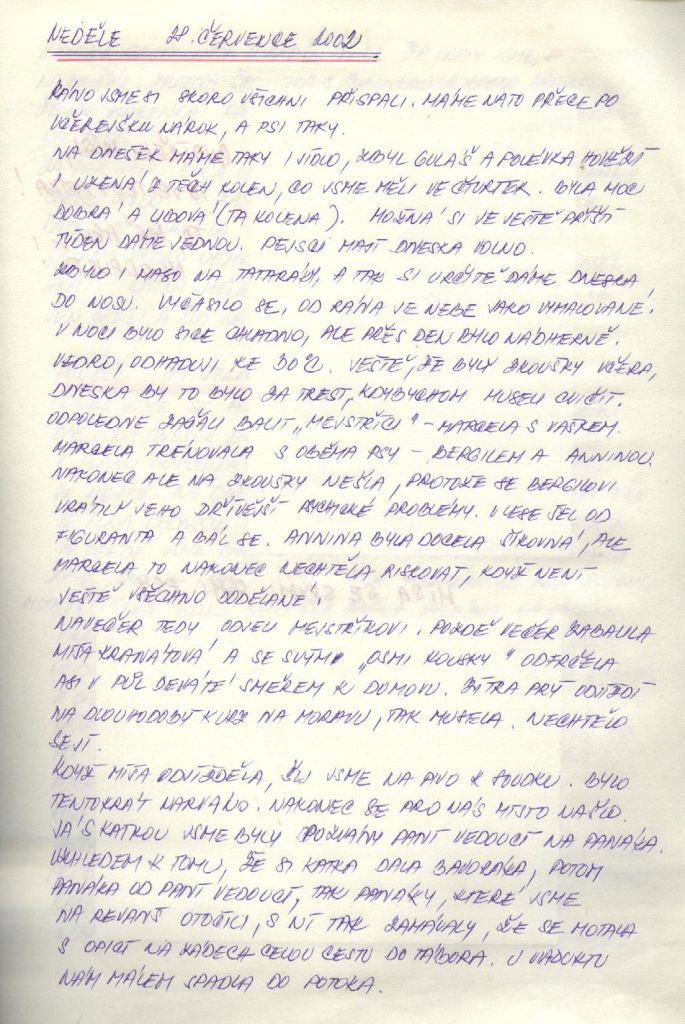 NEDĚLE 28. ČERVENCE 2002
RÁNO JSME SI SKORO VŠICHNI PŘISPALI. MÁME NA TO PŘECE PO
VČEREJŠKU NÁROK, A PSI TAKY.
NA DNEŠEK MÁME TAKY I JÍDLO, ZBYL GULÁŠ A POLÉVKA HOVĚZÍ
I UZENÁ Z TĚCH KOLEN, CO JSME MĚLI VE ČTVRTEK. BYLA MOC
DOBRÁ A LIBOVÁ (TA KOLENA). MOŽNÁ SI JE JEŠTĚ PŘÍŠTÍ
TÝDEN DÁME JEDNOU. PEJSCI MAJÍ DNESKA VOLNO.
ZBYLO I MASO NA TATARÁKY, A TAK SI URČITĚ DÁME DNESKA,
DO NOSU. VYČASILO SE, OD RÁNA JE NEBE JAKO VYMALOVANÉ.
V NOCI BYLO SICE CHLADNO, ALE PŘES DEN BYLO NÁDHERNĚ.
VEDRO, ODHADUJI KE 30°C. JEŠTĚ, ŽE BYLY ZKOUŠKY VČERA,
DNESKA BY TO BYLO ZA TREST, KDYBYCHOM MUSELI CVIČIT.
ODPOLEDNE ZAČALI BALIT „MEJSTŘÍCI" - MARCELA S VAŠKEM.
MARCELA TRÉNOVALA S OBĚMA PSY - BERGILEM A ANNINOU.
NAKONEC ALE NA ZKOUŠKY NEŠLA, PROTOŽE SE BERGILOVI
VRÁTILY JEHO DŘÍVĚJŠÍ PSYCHICKÉ PROBLÉMY. V LESE ŠEL OD
FIGURANTA A BÁL SE. ANNINA BYLA DOCELA ŠIKOVNÁ, ALE
MARCELA TO NAKONEC NECHTĚLA RISKOVAT, KDYŽ NENÍ
JEŠTĚ VŠECHNO DODĚLANÉ!
NAVEČER TEDY ODJELI MEJSTŘÍKOVI. POZDĚ VEČER ZABALILA
MÍŠA KRAJNÁTOVÁ A SE SVÝMI „OSMI KOUSKY" ODFRČELA
ASI V PŮL DEVÁTÉ SMĚREM K DOMOVU. ZÍTRA PRÝ ODJÍŽDÍ
NA DLOUHODOBÝ KURZ NA MORAVU, TAK MUSELA. NECHTĚLO
SE JÍ.
KDYŽ MÍŠA ODJÍŽDĚLA, ŠLI JSME NA PIVO K SOUDKU. BYLO
TENTOKRÁT NARVÁNO. NAKONEC SE PRO NÁS MÍSTO NAŠLO.
JÁ S KATKOU JSME BYLY POZVÁNY PANÍ VEDOUCÍ NA PANÁKA.
VZHLEDEM K TOMU, ŽE SI KATKA DALA BAVORÁKA, POTOM
PANÁKA OD PANÍ VEDOUCÍ, TAK PANÁKY, KTERÉ JSME
NA REVANŠ OTOČILI, S NÍ TAK ZAMÁVALY, ŽE SE MOTALA
S OPICÍ NA ZÁDECH CELOU CESTU DO TÁBORA. U VIADUKTU
NÁM MÁLEM SPADLA DO POTOKA.